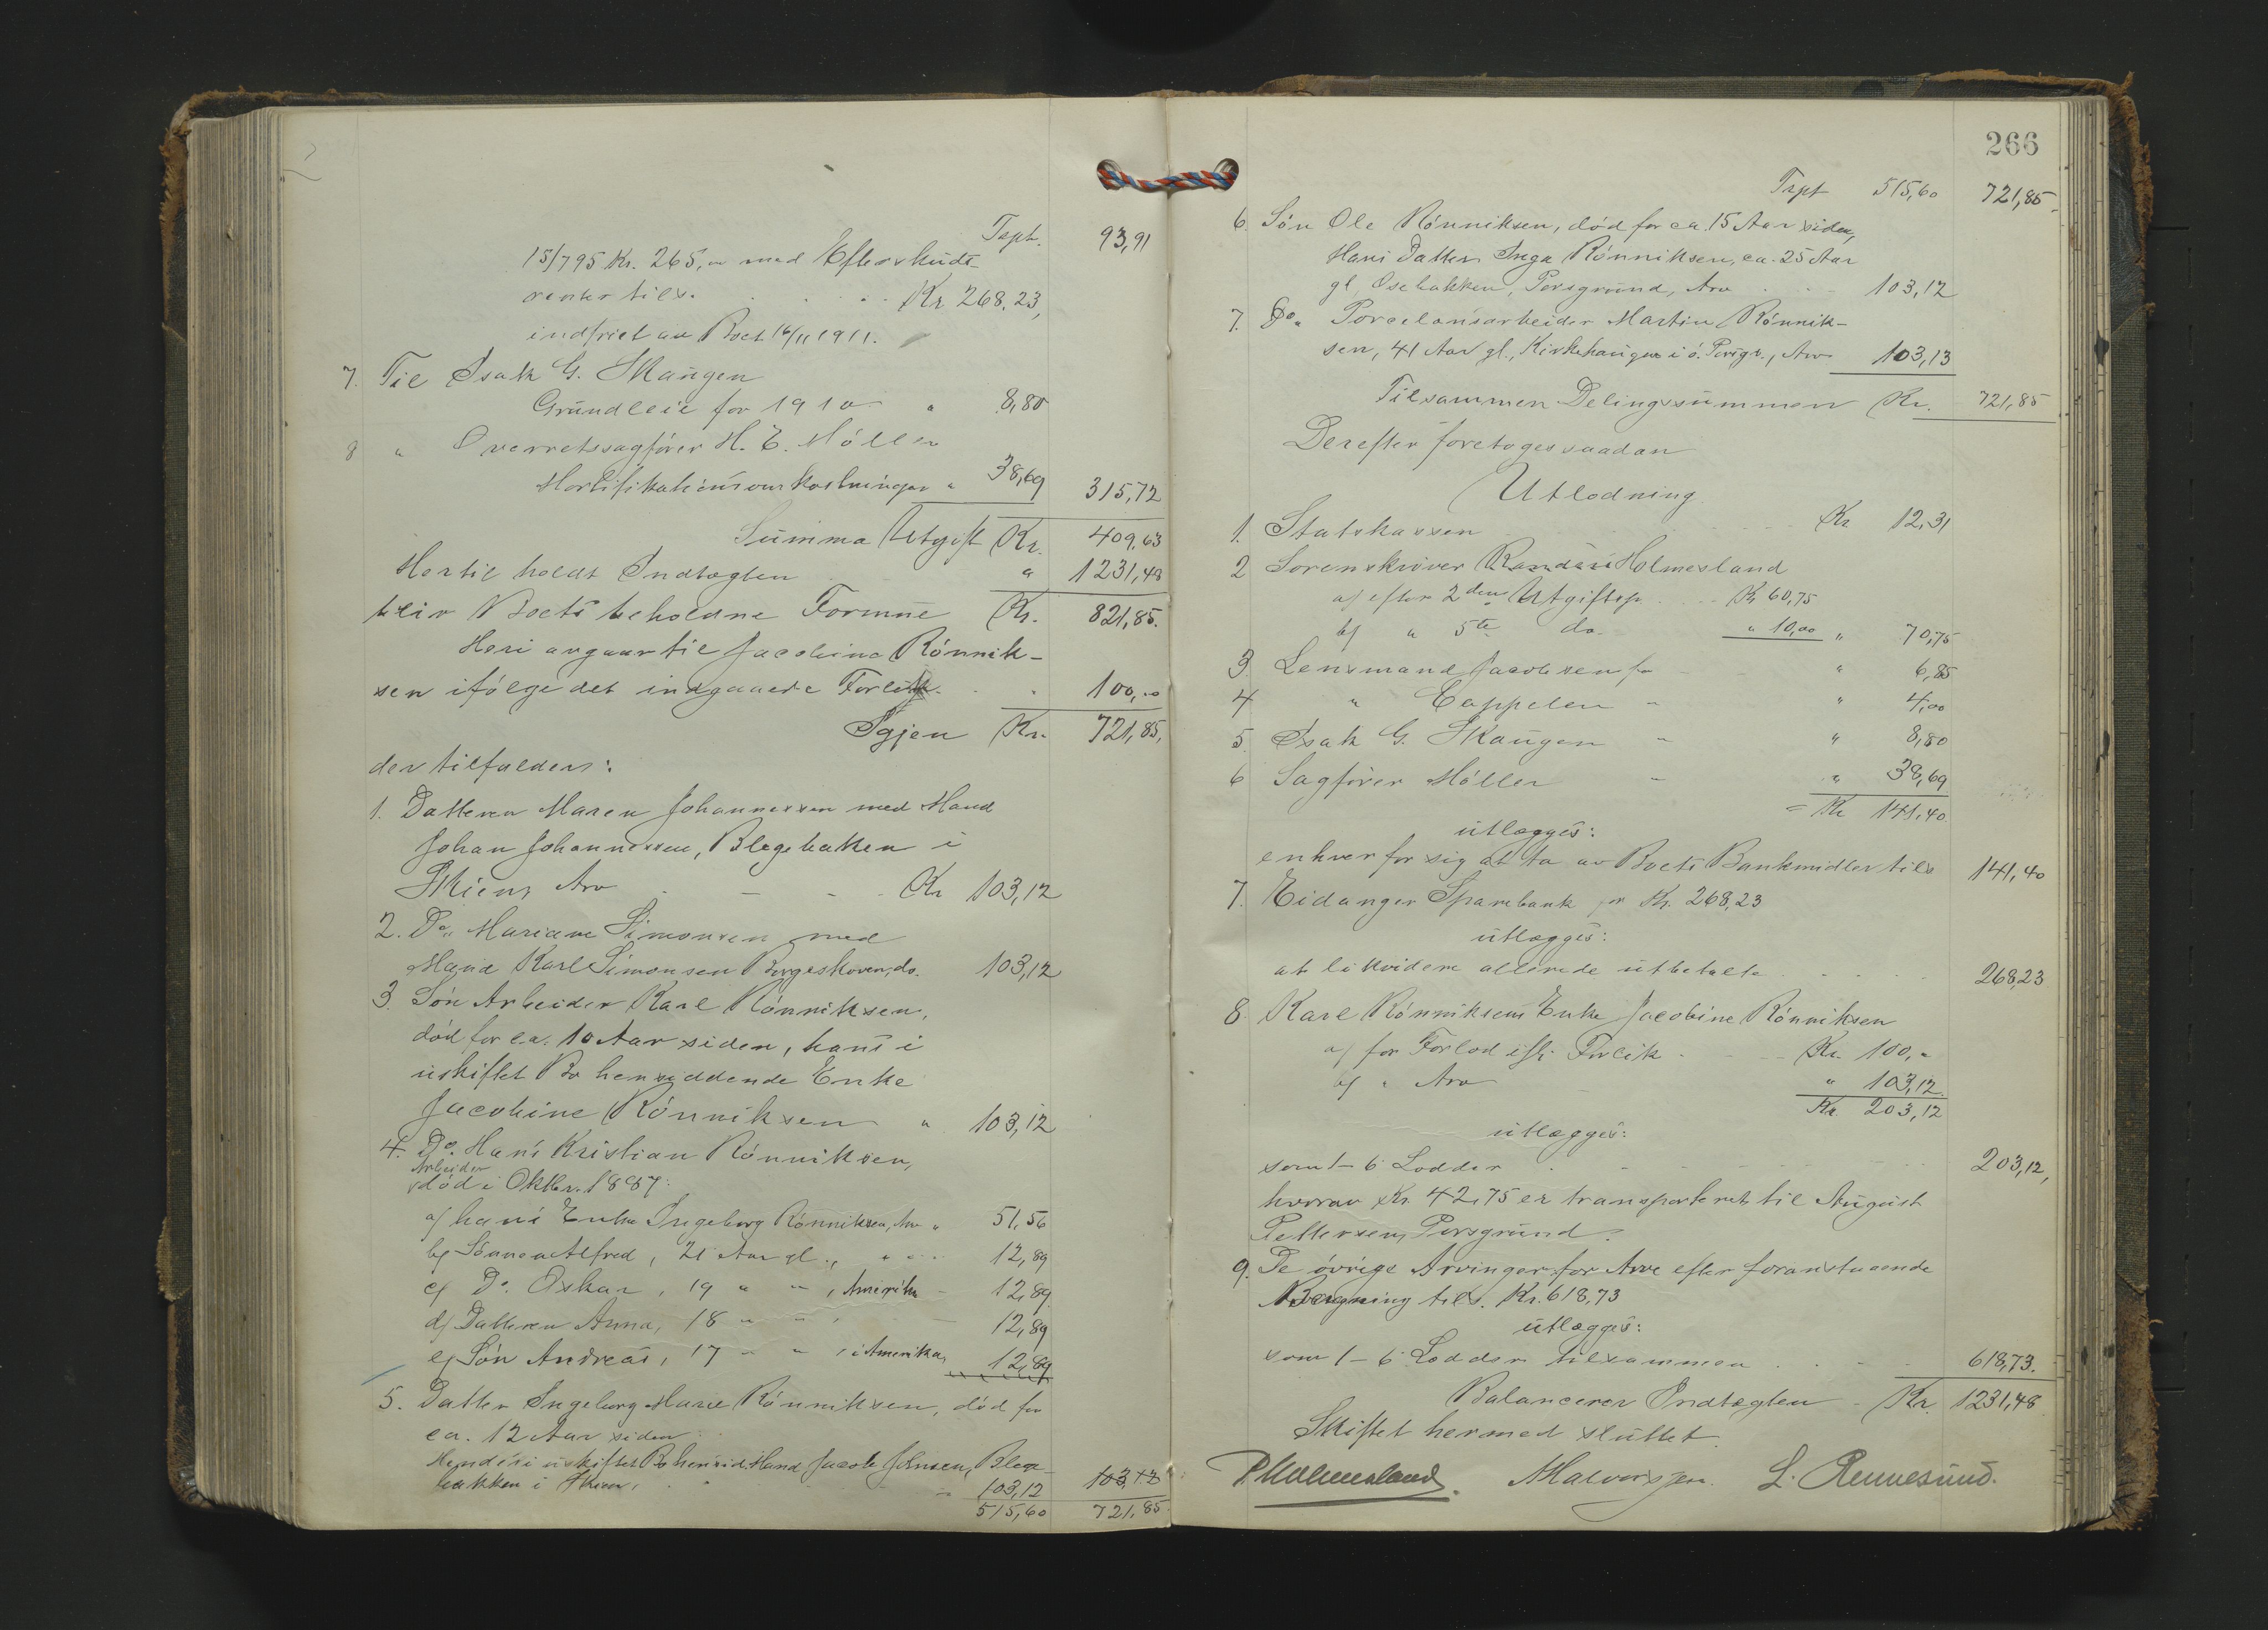 Trpt. 93,91
15/795 Kr. 265,00 med Efterskuds-
renter tils. Kr 268.23,
indfriet av Boet 16/11 1911.
7. Til Isak G. Skaugen
Grundleie for 1910 " 8,80
8 " Overretssagfører H. E. Møller
Mortifikationsomkostninger " 38,69 315,72
Summa Utgift Kr. 409,63
Hertil holdt Indtægten " 1231,48
bliv Boets beholdne Formue Kr. 821,85.
Heri avgaar til Jacobine Rønnik-
sen ifølge det indgaaede Forlik. " 100,00
Igjen Kr. 721,85,
der tilfalder:
1. Datteren Maren Johannessen med Mand
Johan Johannessen, Blegebakken i
Skien, Arv Kr 103,12
2. Do. Mariane Simonsen med
Mand Karl Simonsen Borgeskoven, do. 103,12
3. Søn Arbeider Karl Rønniksen,
død for ca. 10 Aar siden, hans i
uskiftet Bo hensiddende Enke
Jacobine Rønniksen " 103,12
4. Do. Hans Kristian Rønniksen,
Arbeider
død i Oktbr. 1887:
a) hans Enke Ingeborg Rønniksen, Arv " 51,56
b) Sønnen Alfred, 21 Aar gl., " " 12,89
c) Do. Oskar, 19 " " , Amerika - 12,89
d) Datteren Anna, 18 " " , - 12,89
e) Søn Andreas, 17 " " , i Amerika, 12,89
5. Datter Ingeborg Marie Rønniksen, død for
ca. 12 Aar siden
Hendes i uskiftet Bo hensid. Mand Jacob Johnsen, Blege-
bakken i Skien, 103,12 103,12
515,60 721,85
266
Trpt 515,60 721,85
6. Søn Ole Rønniksen, død for ca. 15 Aar siden,
Hans Datter Inga Rønniksen, ca. 25 Aar
gl., Osebakken, Porsgrund, Arv 103,12
7. Do. Porcelænsarbeider Martin Rønnik-
sen, 41 Aar gl., Kirkehaugen i ø. Porsgr., Arv 103,13
Tilsammen Delingssummen Kr. 721,85
Derefter foretoges saadan
Utlodning
1. Statskassen Kr 12,31
2 Sorenskriver Holmesland
a) efter 2den Utgiftsp. Kr 60,75
b) " 5te do. " 10,00 " 70,75
3. Lensmand Jacobsen for " 6,85
4 " Cappelen " " 4,00
5. Isak G. Skaugen " " 8,80
6 Sagfører Møller " " 38,69
= Kr 141,40
utlægges:
enhver for sig at ta av Boets Bankmidler tils 141,40
7. Eidanger Sparebank for Kr. 268,23
utlægges:
at likvidere allerede utbetalte 268,23
8 Karl Rønniksens Enke Jacobine Rønniksen
a) for Forlod ifl. Forlik Kr. 100,"
b) " Arv " 103,12.
Kr. 203,12
utlægges:
som 1-6 Lodder 203,12,
hvorav Kr. 42,75 er transporteret til August
Pettersen, Porsgrund.
9. De øvrige Arvinger for Arv efter foranstaaende
Beregning tils. Kr. 618,73
utlægges:
som 1-6 Lodder tilsammen 618,73.
Balancerer Indtægten - Kr. 1231,48
Skiftet hermed sluttet.
P. Holmesland. A Halvorsen. L. Rennesund.